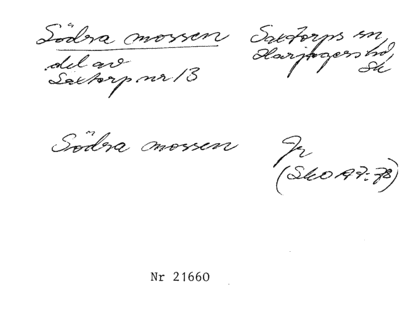 Södra mossen Saxtorps sn,
del av Harjagers hd,
Saxtorp nr 13 Sk
Södra mossen Jr
(SkO A7:78)
Nr 21660